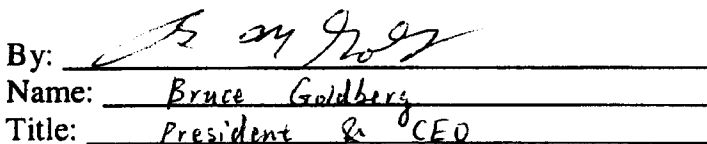 By:
Name: Bruce Goldberg
Title: President & CEO